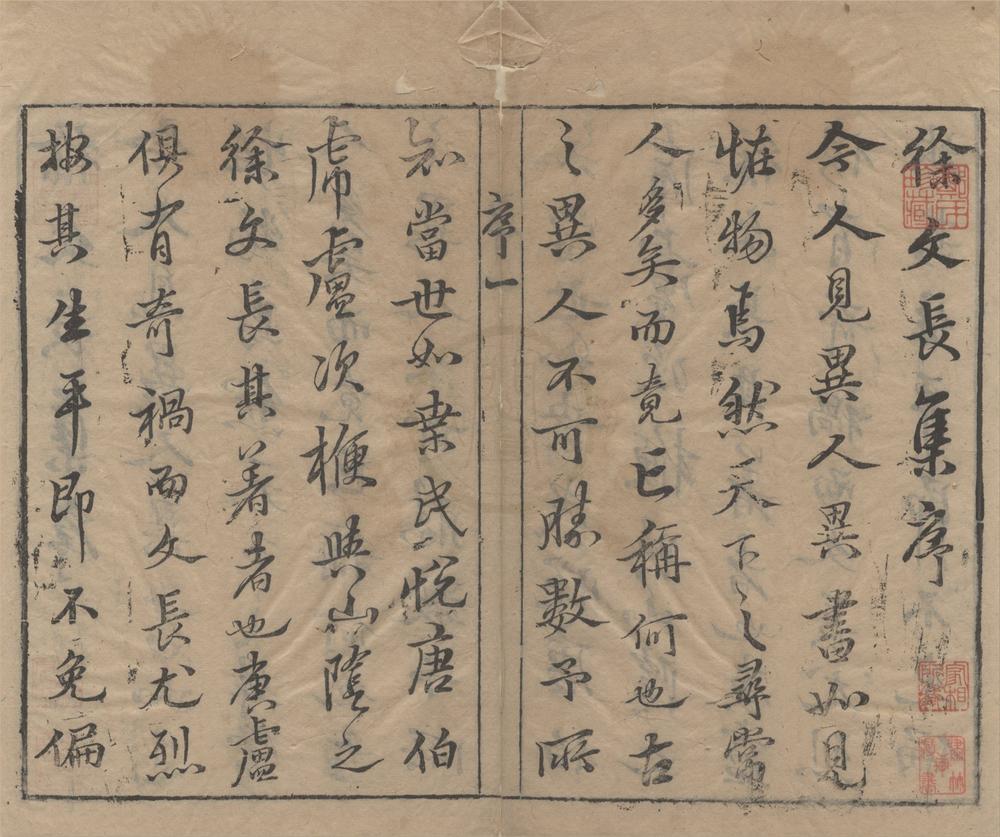 徐文長集序
今人見異人異書如見
恠物焉然天下之尋常
人多矣而竟亡稱何也古
之異人不可勝數予所
序一
知當世如桒民悅唐伯
虎盧次楩與山陰之
徐文長其著者也唐盧
俱有奇禍而文長尤烈
按其生平即不免偏